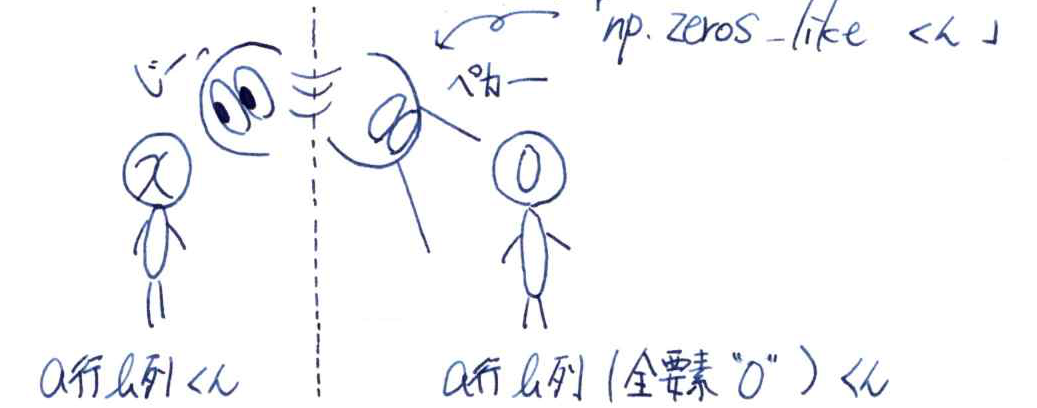 「np.zeros_like くん」
じーっ
ペカー
x
0
a行b列くん
a行b列(全要素"0")くん